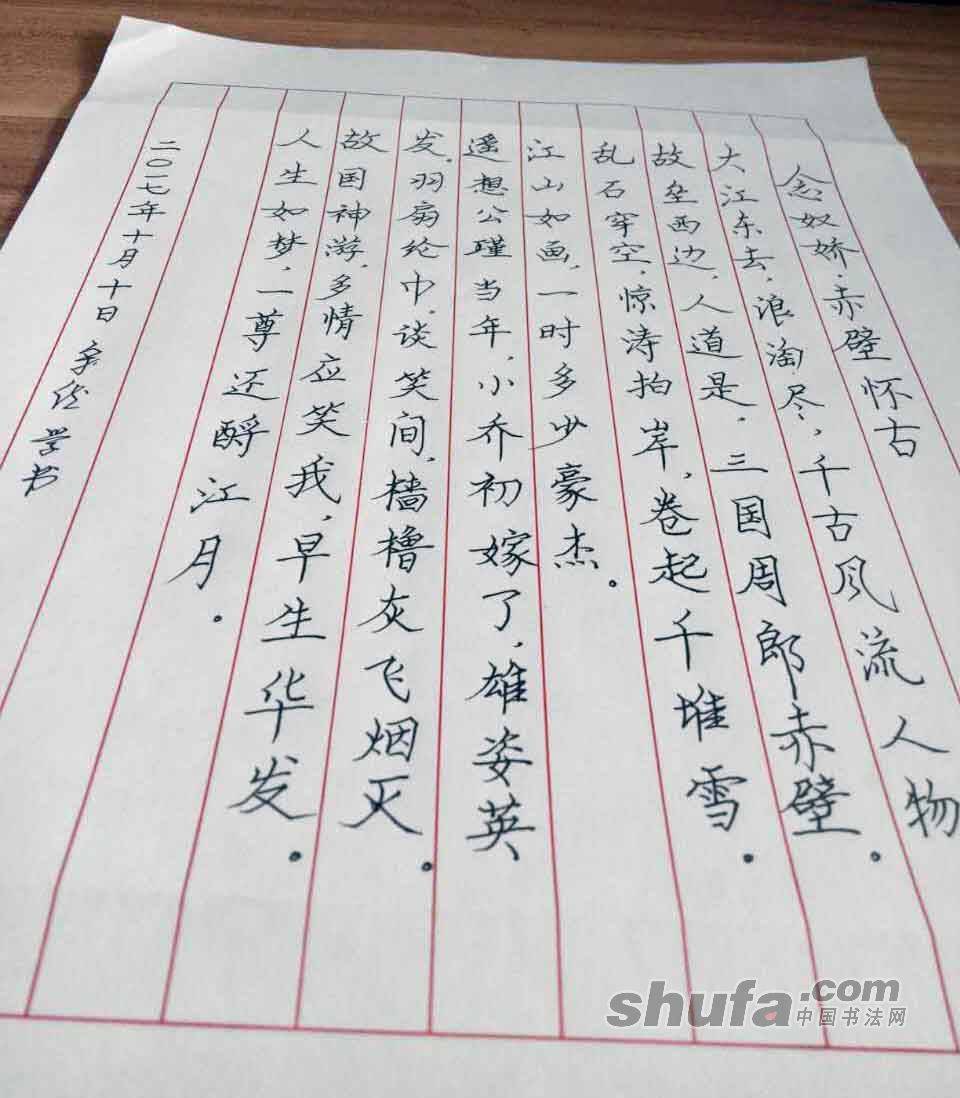 念奴娇·赤壁怀古
大江东去,浪淘尽,千古风流人物
故垒西边,人道是,三国周郎赤壁。
乱石穿空,惊涛拍岸,卷起千堆雪。
江山如画,一时多少豪杰。
遥想公瑾当年,小乔初嫁了,雄姿英
发,羽扇纶巾,谈笑间,樯橹灰飞烟灭。
故国神游,多情应笑我,早生华发。
人生如梦,一尊还酹江月。
二〇一七年十月十日 学书
shufa.com
中国书法网